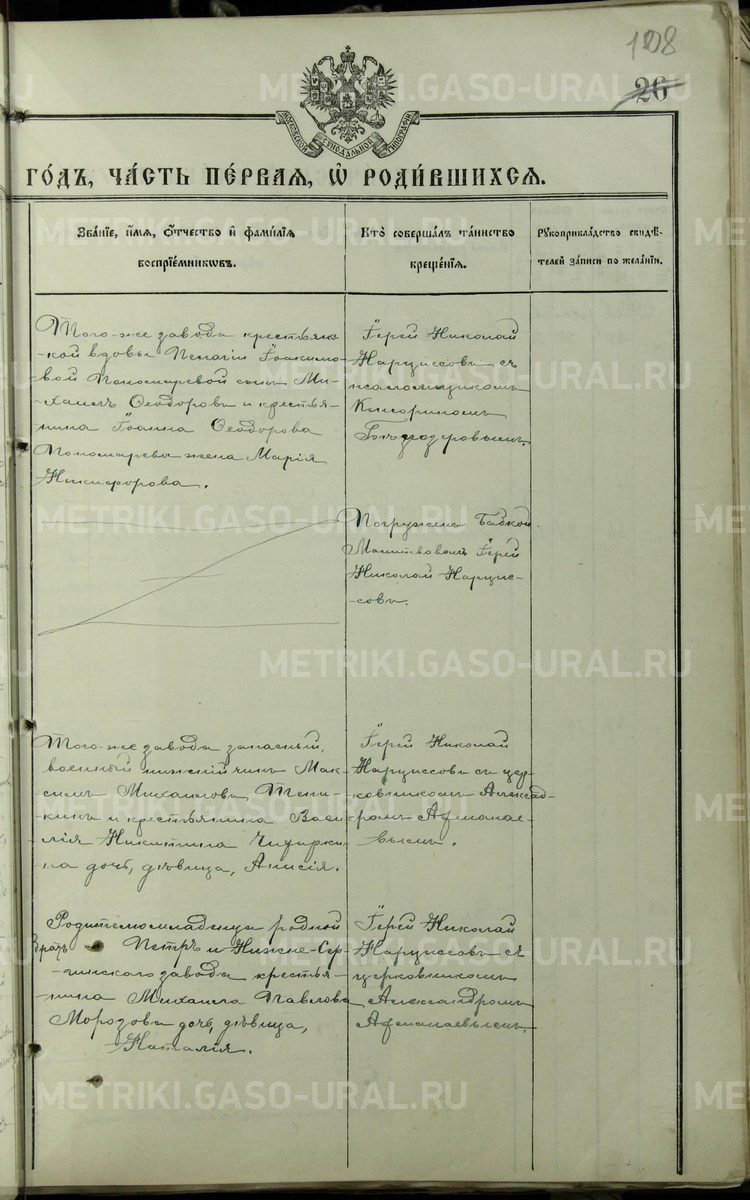 108
26
МОСКОВСКОЙ СѴНОДАЛЬНОЙ ТИПОГРАФІИ
ГО́ДЪ, ЧА́СТЬ ПЕ́РВАЯ, Ѡ҆ РОДИ́ВШИХСЯ.
Зва́ніе, и҆́мя, о҆́тчество и҆ фами́лія
воспріе́мникѡвъ.
Кто̀ соверша́лъ та́инство
креще́нія.
Рꙋкоприкла́дство свидѣ́-
телей за́писи по жела́нію.
Того-же завода крестьян-
-ской вдовы Пелагіи Іоакимо-
-вой Пономаревой сынъ Ми-
-хаилъ Ѳеодоровъ и крестья-
-нина Іоанна Ѳеодорова
Пономарева жена Марія
Никифорова.
Іерей Николай
Нарциссовъ съ
псаломщикомъ
Погруженъ Бабкой.
Молитвовалъ Іерей
Николай Нарцис-
-совъ.
Того-же завода запасный,
военный нижній чинъ Мак-
-симъ Михаиловъ
и крестьянина Васи-
-лія Никитина
-на дочь, дѣвица, Анисія.
Іерей Николай
Нарциссовъ съ цер-
-ковникомъ Александ-
-ромъ Аѳанас-
-вымъ.
Родителю младенца родной
братъ Петръ и Нижне-Сер-
-гинского завода крестья-
-нина Михаила Павлова
Морозова дочь, дѣвица,
Наталія.
Іерей Николай
Нарциссовъ съ
церковникомъ
Александромъ
Аѳанасьевымъ.
METRIKI.GASO-URAL.RU